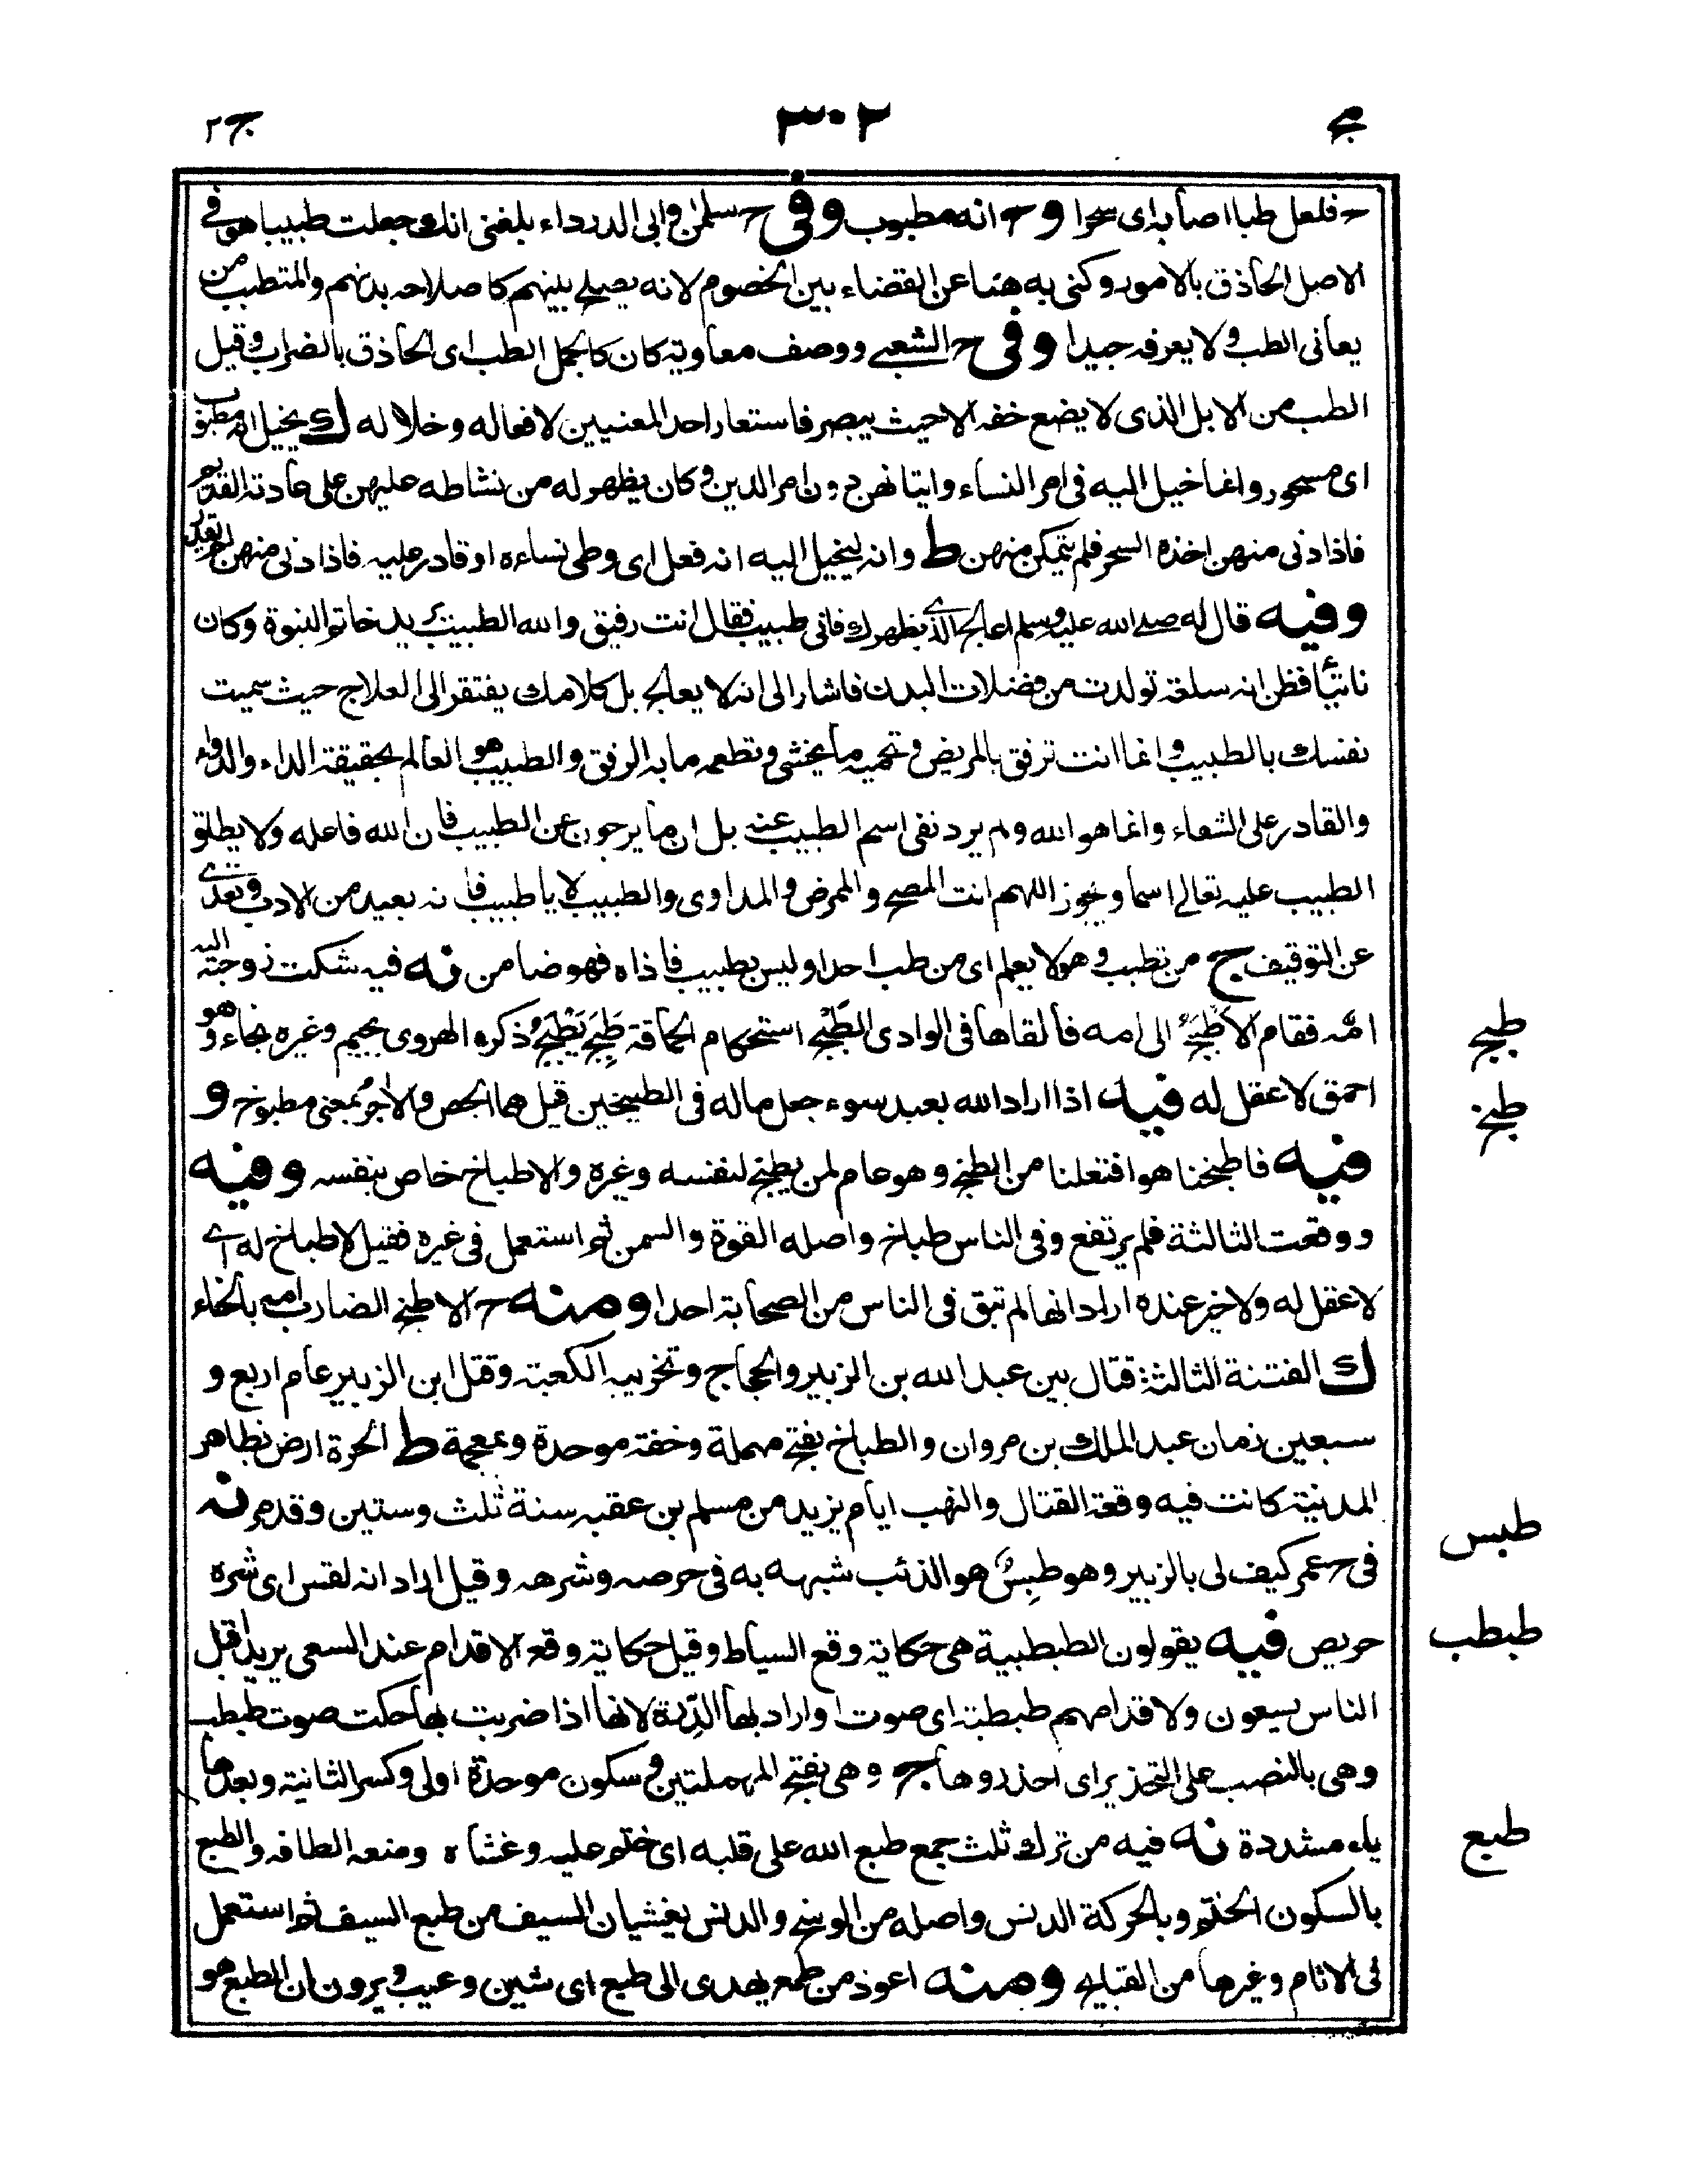 ج٢ ٣٠٢
ح فلعل طبا اصابه اى سحرا وح انه مطبوب وفى ح سلمن وابى الدرداء بلغنى انك جعلت طبيبا هو فى
الاصل الحاذق بالامور وكنى به هنا عن القضاء بين الخصوم لانه يصلح بينهم كاصلاحه بدنهم والمتطبب من
يعانى الطب ولا يعرفه جيدا وفى ح الشعبے ووصف معاوية كان كالجمل الطب اى الحاذق بالضراب وقيل
الطب من الابل الذى لا يضع خفه الا حيث يبصر فاستعار احد المعنيين لافعاله وخلاله ك يخيل انه مطبوب
اى مسحور وانما خيل اليه فى امر النساء واتيانهن دون امر الدين وكان يظهر له من نشاطه عليهن على عادته القديم
فاذا دنى منهن اخذه السحر فلم يتمكن منهن ط وانه ليخيل اليه انه فعل اى وطى نساءه او قادر عليه فاذا دنى منهن لم يقدر
وفيه قال له صلے الله عليه وسلم اعالج الذے بظهرك فانى طبيب فقال انت رفيق والله الطبيب يريد خاتم النبوة وكان
ناتئا فظن انه سلعة تولدت من فضلات البدن فاشار الى انه لا يعالج بل كلامك يفتقر الى العلاج حيث سميت
نفسك بالطبيب وانما انت ترفق بالمريض وتحميه ما يخشى وتطعمه ما به الرفق والطبيب هو العالم بحقيقة الداء والدواء
والقادر على الشفاء وانما هو الله ولم يرد نفى اسم الطبيب عنه بل ان ما يرجون عن الطبيب فان الله فاعله ولا يطلق
الطبيب عليه تعالے اسما ويجوز اللهم انت المصح والممرض والمداوى والطبيب لا يا طبيب فانه بعيد من الادب وتعدے
عن التوقيف ج من تطبب وهو لا يعلم اى من طب احدا وليس بطبيب فاذاه فهو ضامن نه فيه شكت زوجته اليه
امّه فقام الاَطْبَج الى امه فألقاها فى الوادى الطَّبْج استحكام الحماقة طَبِجَ يَطْبَج ذكره الهروى بجيم وغيره بخاء وهو
احمق لا عقل له فيه اذا اراد الله بعبد سوء جعل ماله فى الطبيخين قيل هما الجص والآجر بمعنى مطبوخ و
فيه فاطبخنا هو افتعلنا من الطبخ وهو عام لمن يطبخ لنفسه وغيره والاطباخ خاص بنفسه وفيه
ووقعت الثالثة فلم يرتفع وفى الناس طباخ واصله القوة والسمن ثم استعمل فى غيره فقيل لا طباخ له اے
لا عقل له ولا خير عنده اراد انها لم تبق فى الناس من الصحابة احدا ومنه ح الاطبخ الضارب امه بالخاء
ك الفتنة الثالثة قتال بين عبد الله بن الزبير والحجاج وتخريبه الكعبة وقتل ابن الزبير عام اربع و
سبعين زمان عبد الملك بن مروان والطباخ بفتح مهملة وخفة موحدة وبمعجمة ط الحرة ارض بظاهر
المدينة كانت فيه وقعة القتال والنهب ايام يزيد من مسلم بن عقبه سنة ثلث وستين وقدمر نه
فى ح عمر كيف لى بالزبير وهو طبِسٌ هو الذئب شبهه به فى حرصه وشرهه وقيل اراد انه لقس اى شره
حريص فيه يقولون الطبطبية هى حكاية وقع السياط وقيل حكاية وقعه الاقدام عند السعى يريد اقبل
الناس يسعون ولاقدامهم طبطبة اى صوت او اراد بها الدِّرة لانها اذا ضربت بها حكت صوت طبطب
وهى بالنصب على التحذير اى احذروها ج وهى بفتح المهملتين وسكون موحدة اولى وكسر الثانية وبعدها
ياء مشددة نه فيه من ترك ثلث جمع طبع الله على قلبه اى ختم عليه وغشاه ومنعه الطافه والطبع
بالسكون الختم وبالحركة الدنس واصله من الوسخ والدنس يغشيان السيف من طبع السيف ثم استعمل
فى الاثام وغيرها من القبايح ومنه اعوذ من طمع يهدى الى طبع اى شين وعيب ويرون ان الطبع هو
طبج
طبخ
طبس
طبطب
طبع